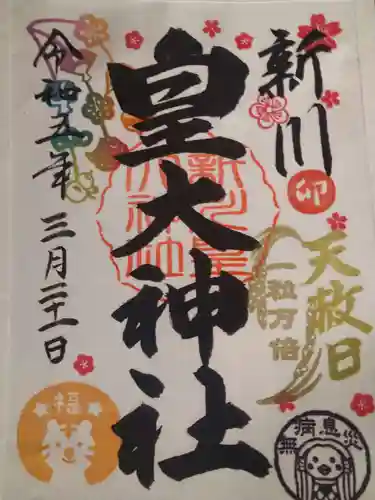 新川
卯
天赦日
一粒万倍
無病息災
皇大神社
新川皇大神社
令和五年
三月二十一日
福